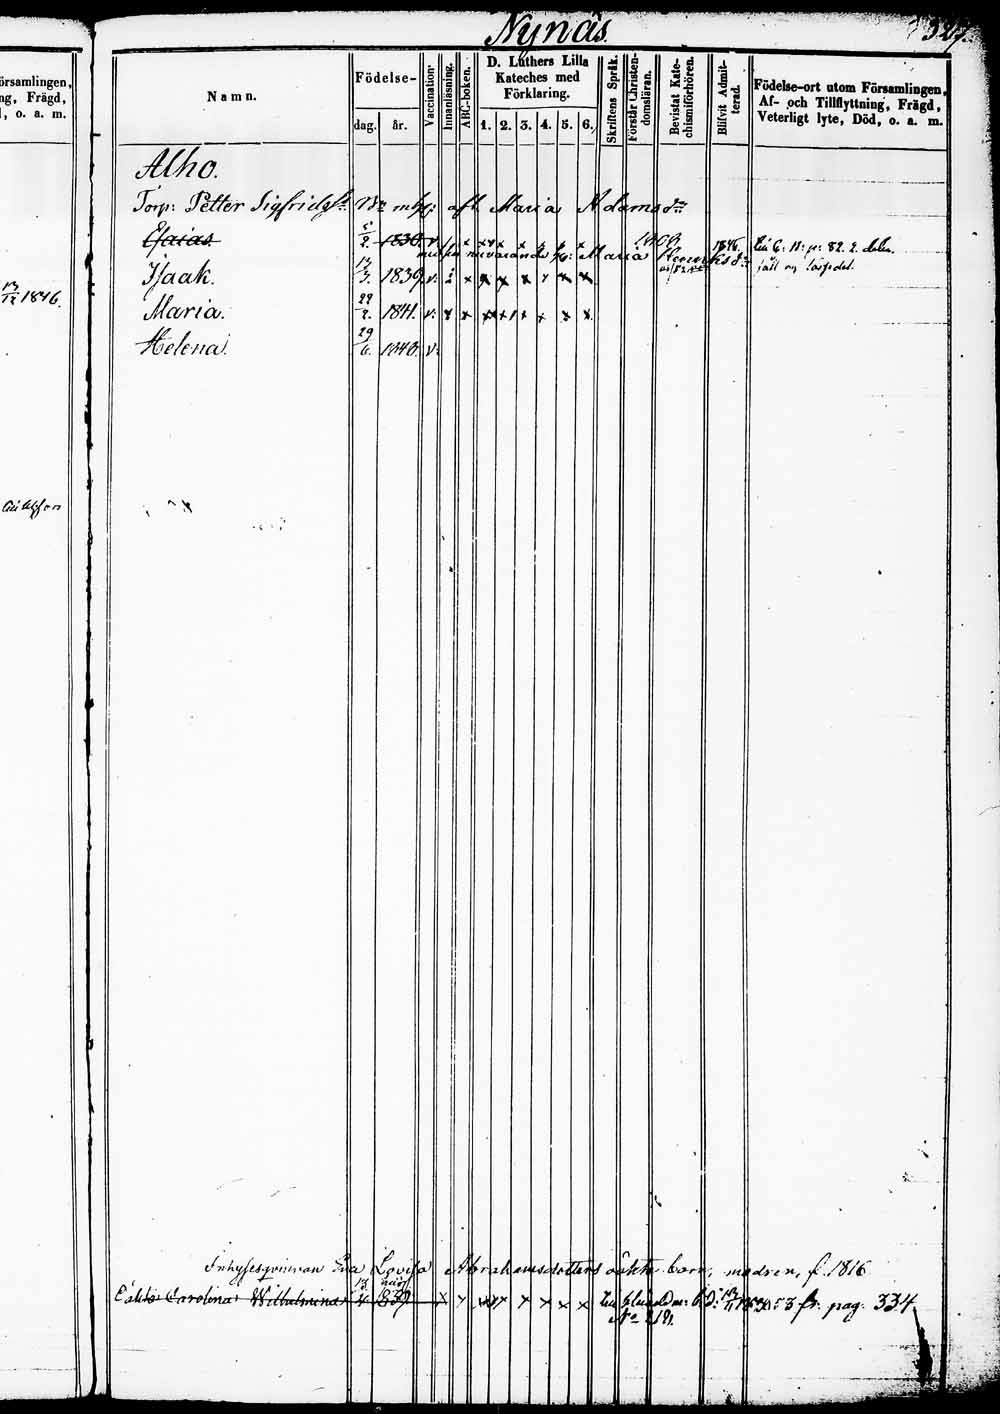 Nynäs.
örsamlingen,
ng, Frägd,
, o. a. m.
Namn.
Födelse-
dag. år.
Vaccination.
Innanläsning.
ABC-boken.
D. Luthers Lilla
Kateches med
Förklaring.
1. 2. 3. 4. 5. 6.
Skriftens Språk.
Förstår Christen-
domsläran.
Bevistat Kate-
chismiförhören.
Blifvit Admit-
terad.
Födelse-ort utom Församlingen,
Af- och Tillflyttning, Frägd,
Veterligt lyte, Död, o. a. m.
Alho.
Torp: Petter Sigfridss: afl. Maria Adamsdr
Esaias 2. 1836. v. 1846. 82. 2. delen.
nuvarande h: Maria Henriksdr
Isaak. 13/3. 1839. v:
1846.
Maria. 22/2. 1841. v:
Helena. 29/6. 1843. v:
Inhysesqvinnan Eva Lovisa Abrahamsdotters oäkta barn, modren, f. 1816
Oäkta Carolina Wilhelmina 13/4 1839. fr. pag. 334